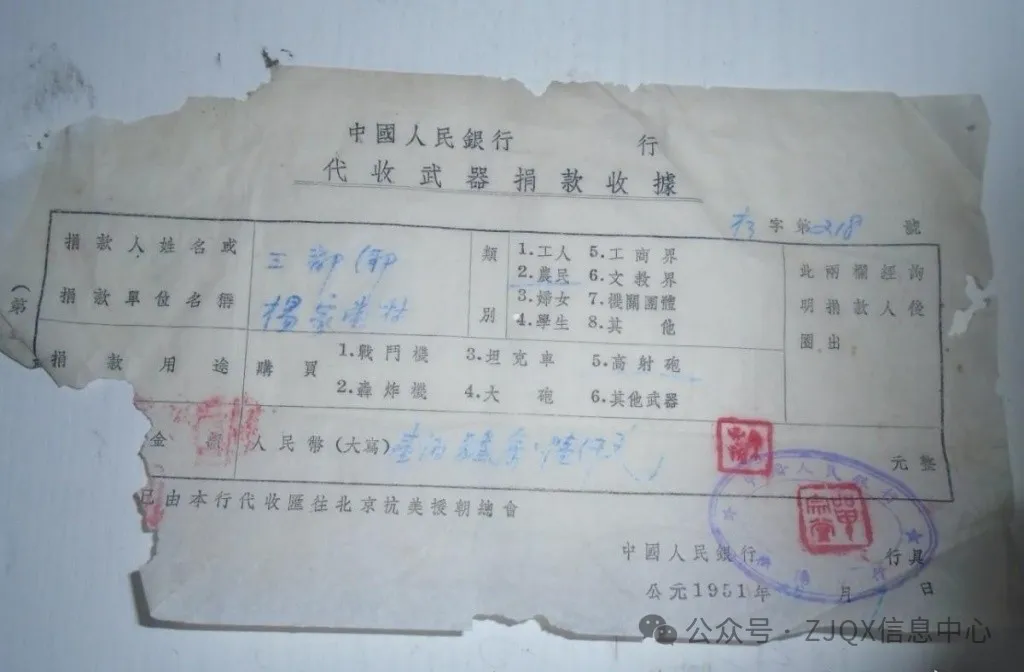 中國人民銀行 行
代收武器捐款收據
字第218號
捐款人姓名或
捐款單位名稱
三 鄉
楊家 村
類別
1.工人 5.工商界
2.農民 6.文教界
3.婦女 7.機關團體
4.學生 8.其他
此兩欄經詢
明捐款人後
圈出
(第
捐款用途
購買
1.戰鬥機 3.坦克車 5.高射砲
2.轟炸機 4.大砲 6.其他武器
金額
人民幣(大寫)壹百 萬 陸仟
元整
已由本行代收匯往北京抗美援朝總會
中國人民銀行 行具
公元1951年 月 日
公众号·ZJQX信息中心